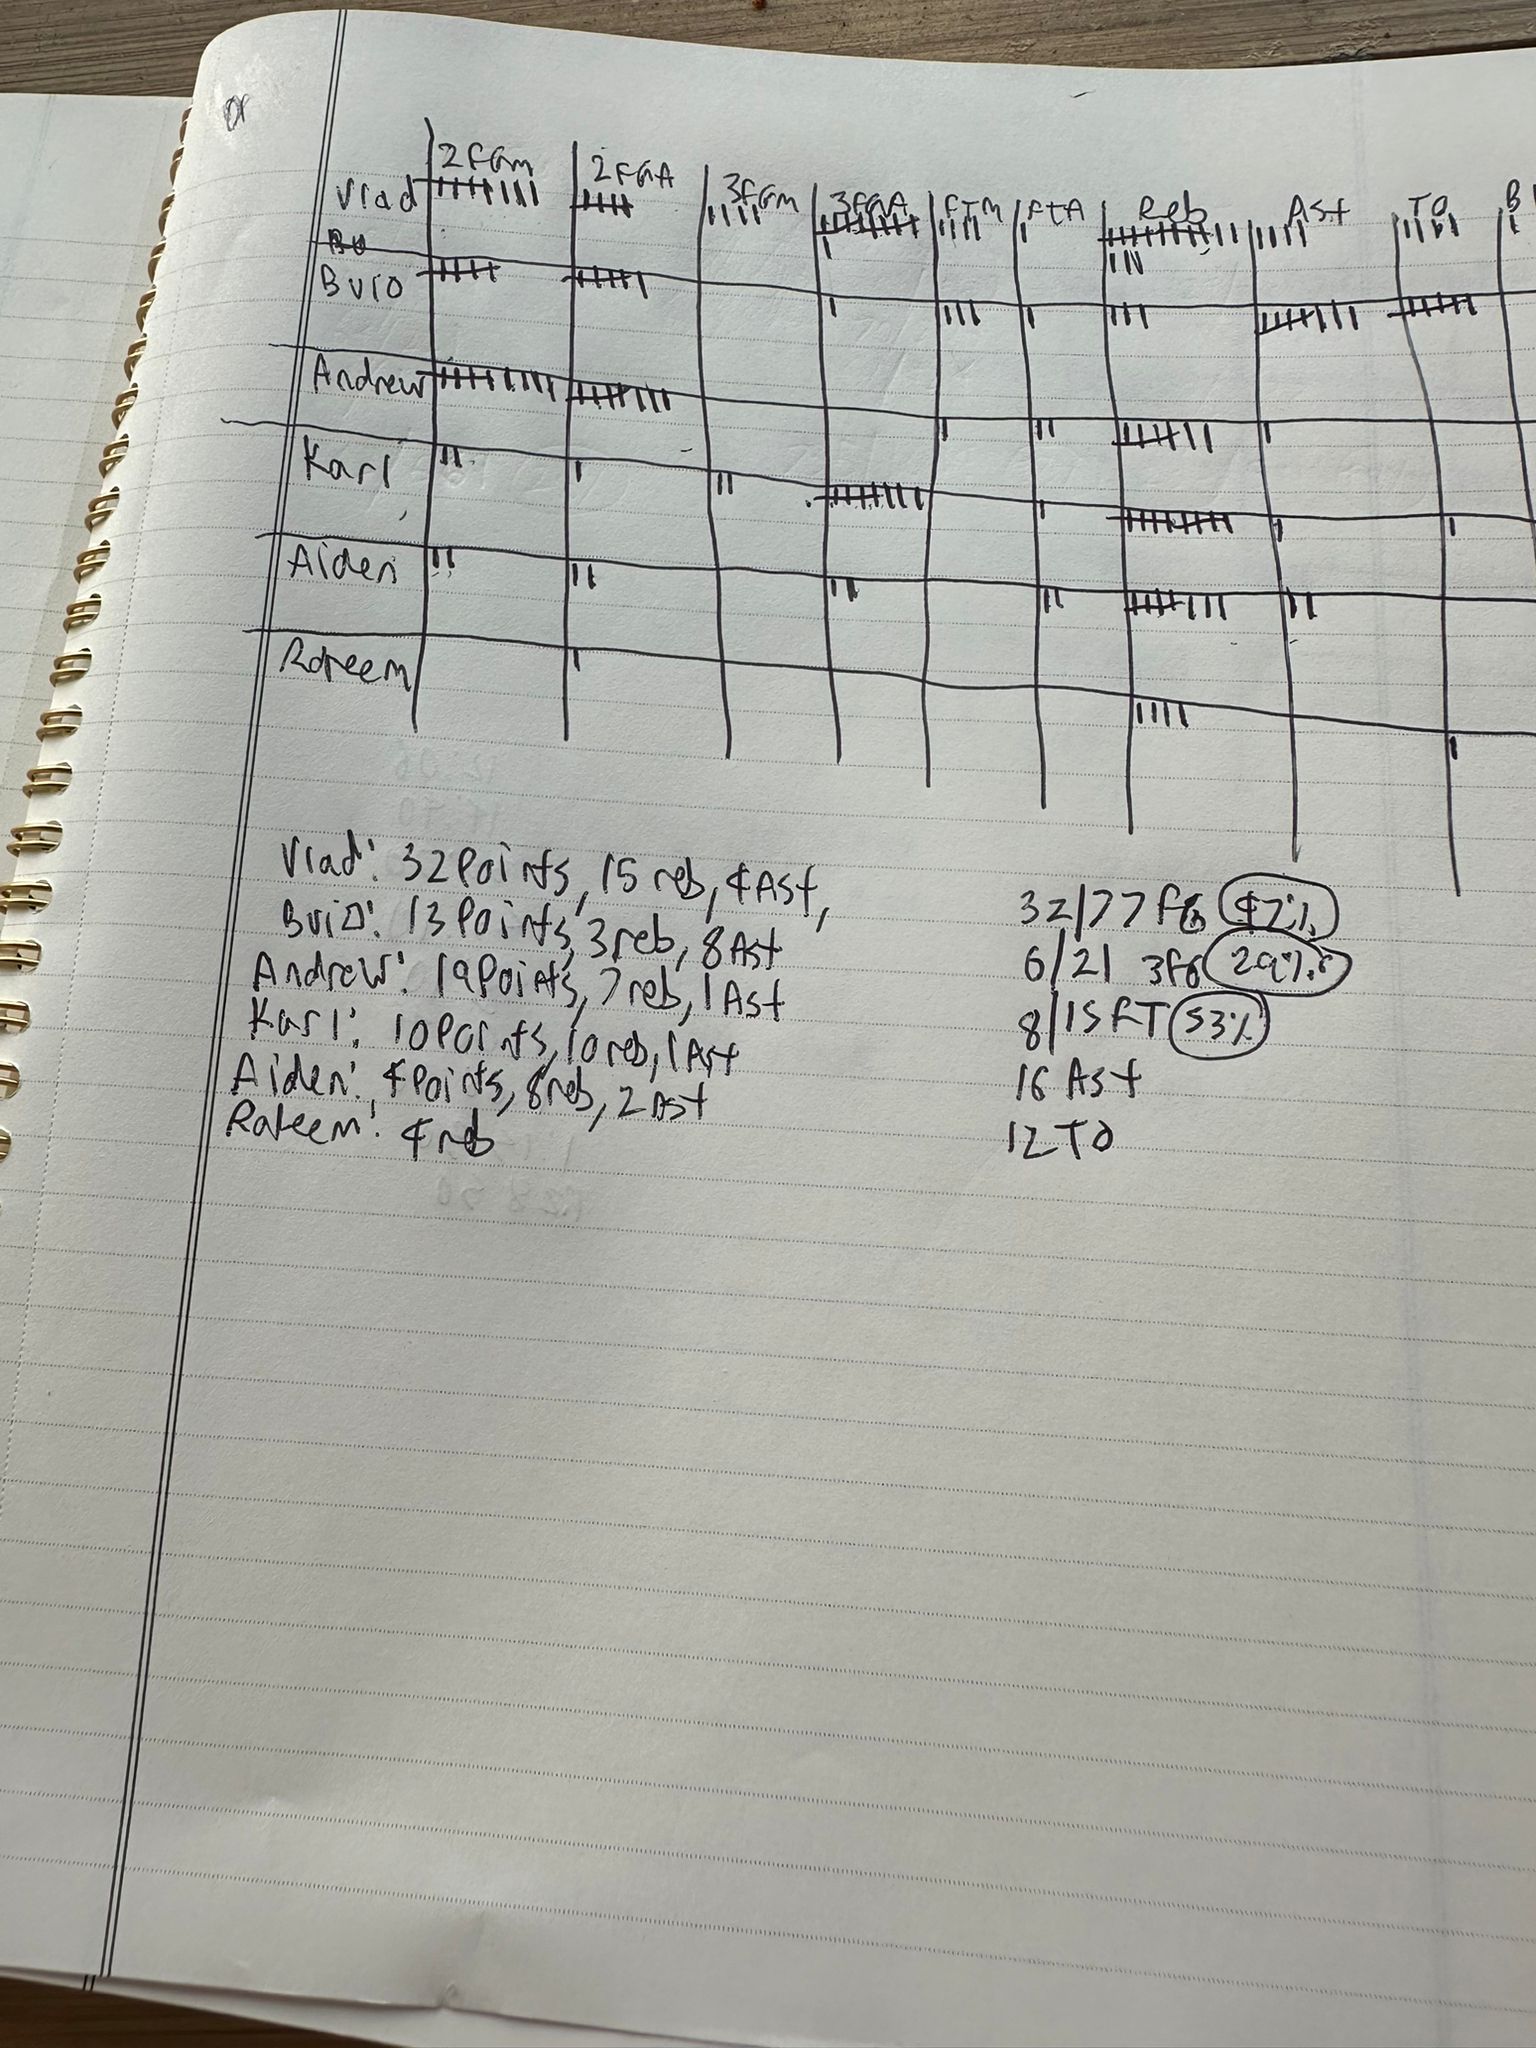 2FGM 2FGA 3FGM 3FGA FTM FTA Reb ASt TO B
Vlad
BU
BUiO
Andrew
Karl
Aiden
Raheem
Vlad: 32 Points, 15 reb, 4 ASt,
BUiO: 13 Points, 3 reb, 8 Ast
Andrew: 19 Points, 7 reb, 1 Ast
Karl: 10 Points, 10 reb, 1 Ast
Aiden: 4 Points, 8 reb, 2 Ast
Raheem: 4 reb
32/77 FG 47%
6/21 3FG 29%
8/15 FT 53%
16 Ast
12 TO